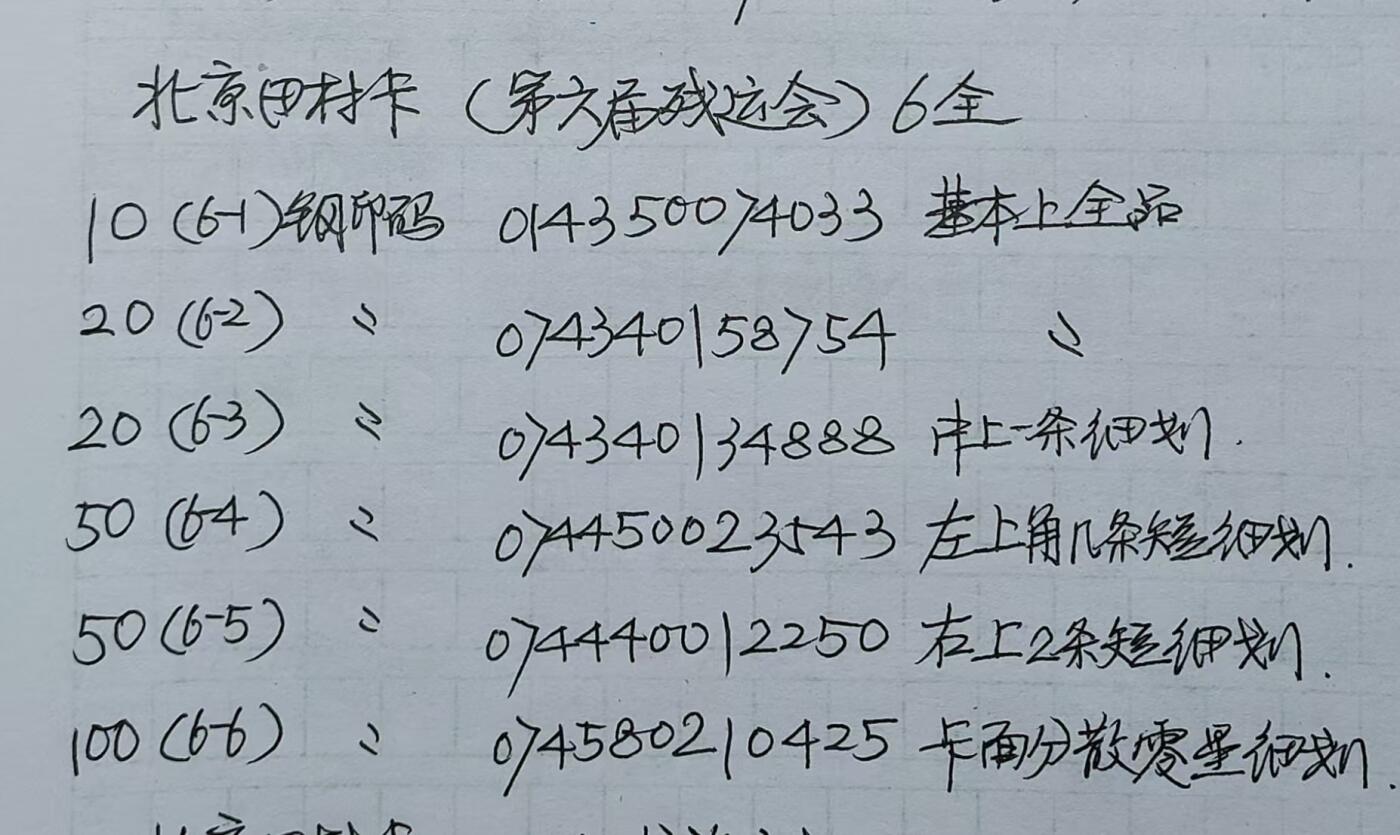 北京田村卡（第六届残运会）6全
10（6-1）钢印码 014350074033 基本上全品
20（6-2） 〃 074340158754 〃
20（6-3） 〃 074340134888 中上一条细划.
50（6-4） 〃 074450023543 左上角几条短细划.
50（6-5） 〃 074440012250 右上2条短细划.
100（6-6） 〃 074580210425 卡面分散零星细划.